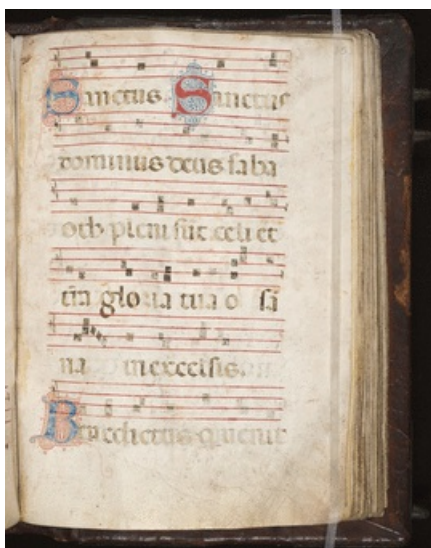 Sanctus Sanctus
dominus deus saba
oth pleni sūt celi et
tra gloria tua o sā
na in excelsis.
Benedictus qui uenit